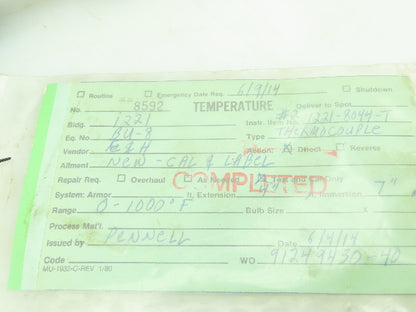 ☐ Routine ☐ Emergency Date Req. 6/9/14 ☐ Shutdown
No. 8592 TEMPERATURE Deliver to Spot
Bldg. 1221 Instr. Item No. #2 1221-8044-T
Eq. No BU-8 Type THERMOCOUPLE
Vendor E&H Action: ☒ Direct ☐ Reverse
Ailment NEW - CAL & LABEL
COMPLETED
Repair Req. ☐ Overhaul ☐ As Needed ☒ Test and Cal Only
System: Armor IL Extension 4" IL Immersion 7"
Range 0-1000°F Bulb Size X
Process Mat'l.
Issued by PENNELL Date 6/4/14
Code WO 91249430-40
MU-1932-C-REV 1/80